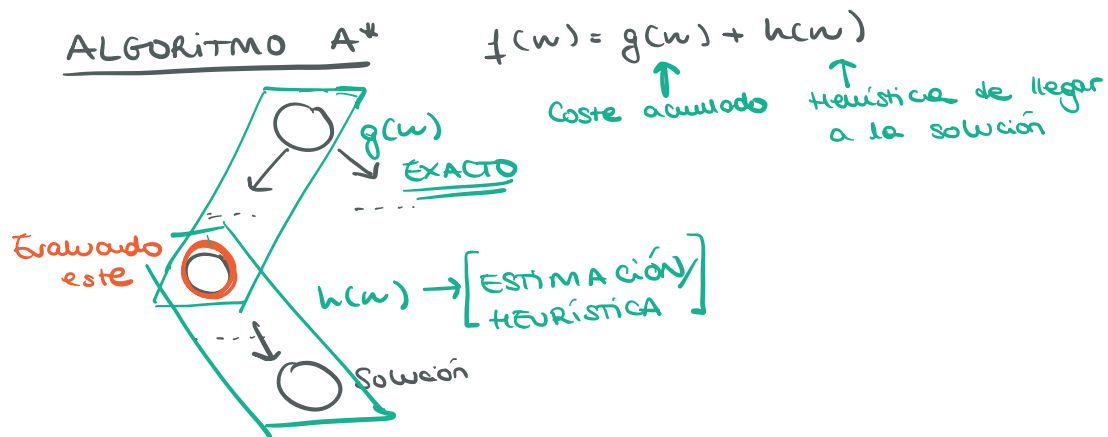 ALGORITMO A*
f(n) = g(n) + h(n)
Coste acumulado
Heurística de llegar
a la solución
g(n)
EXACTO
Evaluando
este
h(n) → [ESTIMACIÓN/
HEURÍSTICA]
Solución